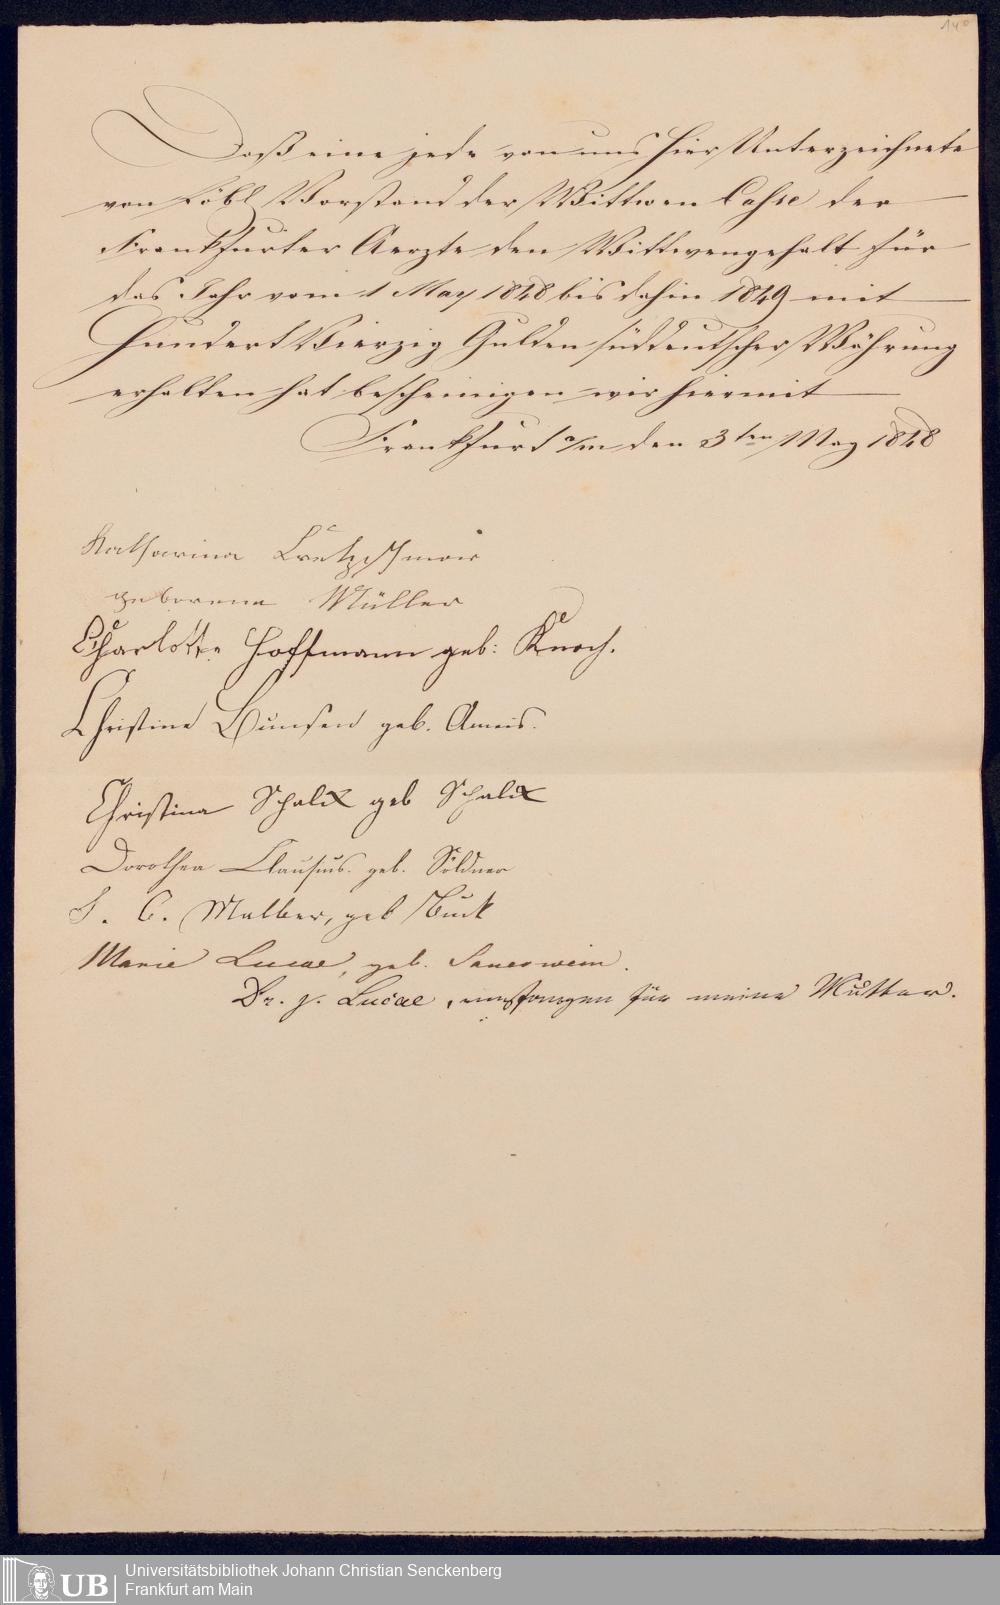 140
Daß eine jede von uns hier Unterzeichnete
von Löbl Vorstand der Wittwen Casse der
Frankfurter Aerzte den Wittwengehalt für
das Jahr vom 1 May 1848 bis dahin 1849 mit
Hundert Vierzig Gulden süddeutscher Währung
erhalten hat bescheinigen wir hiermit
Frankfurt a/m den 3ten May 1848
Katharina Cretzschmar
geborene Müller
Charlotte Hoffmann geb: Knoch.
Christine Bunsen geb. Ameis.
Christina Schalck geb Schalck
Dorothea Clausius. geb. Söldner
S. C. Malber, geb Buck
Marie Lucae, geb. Sauerwein.
Dr. J. Lucae, empfangen für meine Mutter.
UB
Universitätsbibliothek Johann Christian Senckenberg
Frankfurt am Main